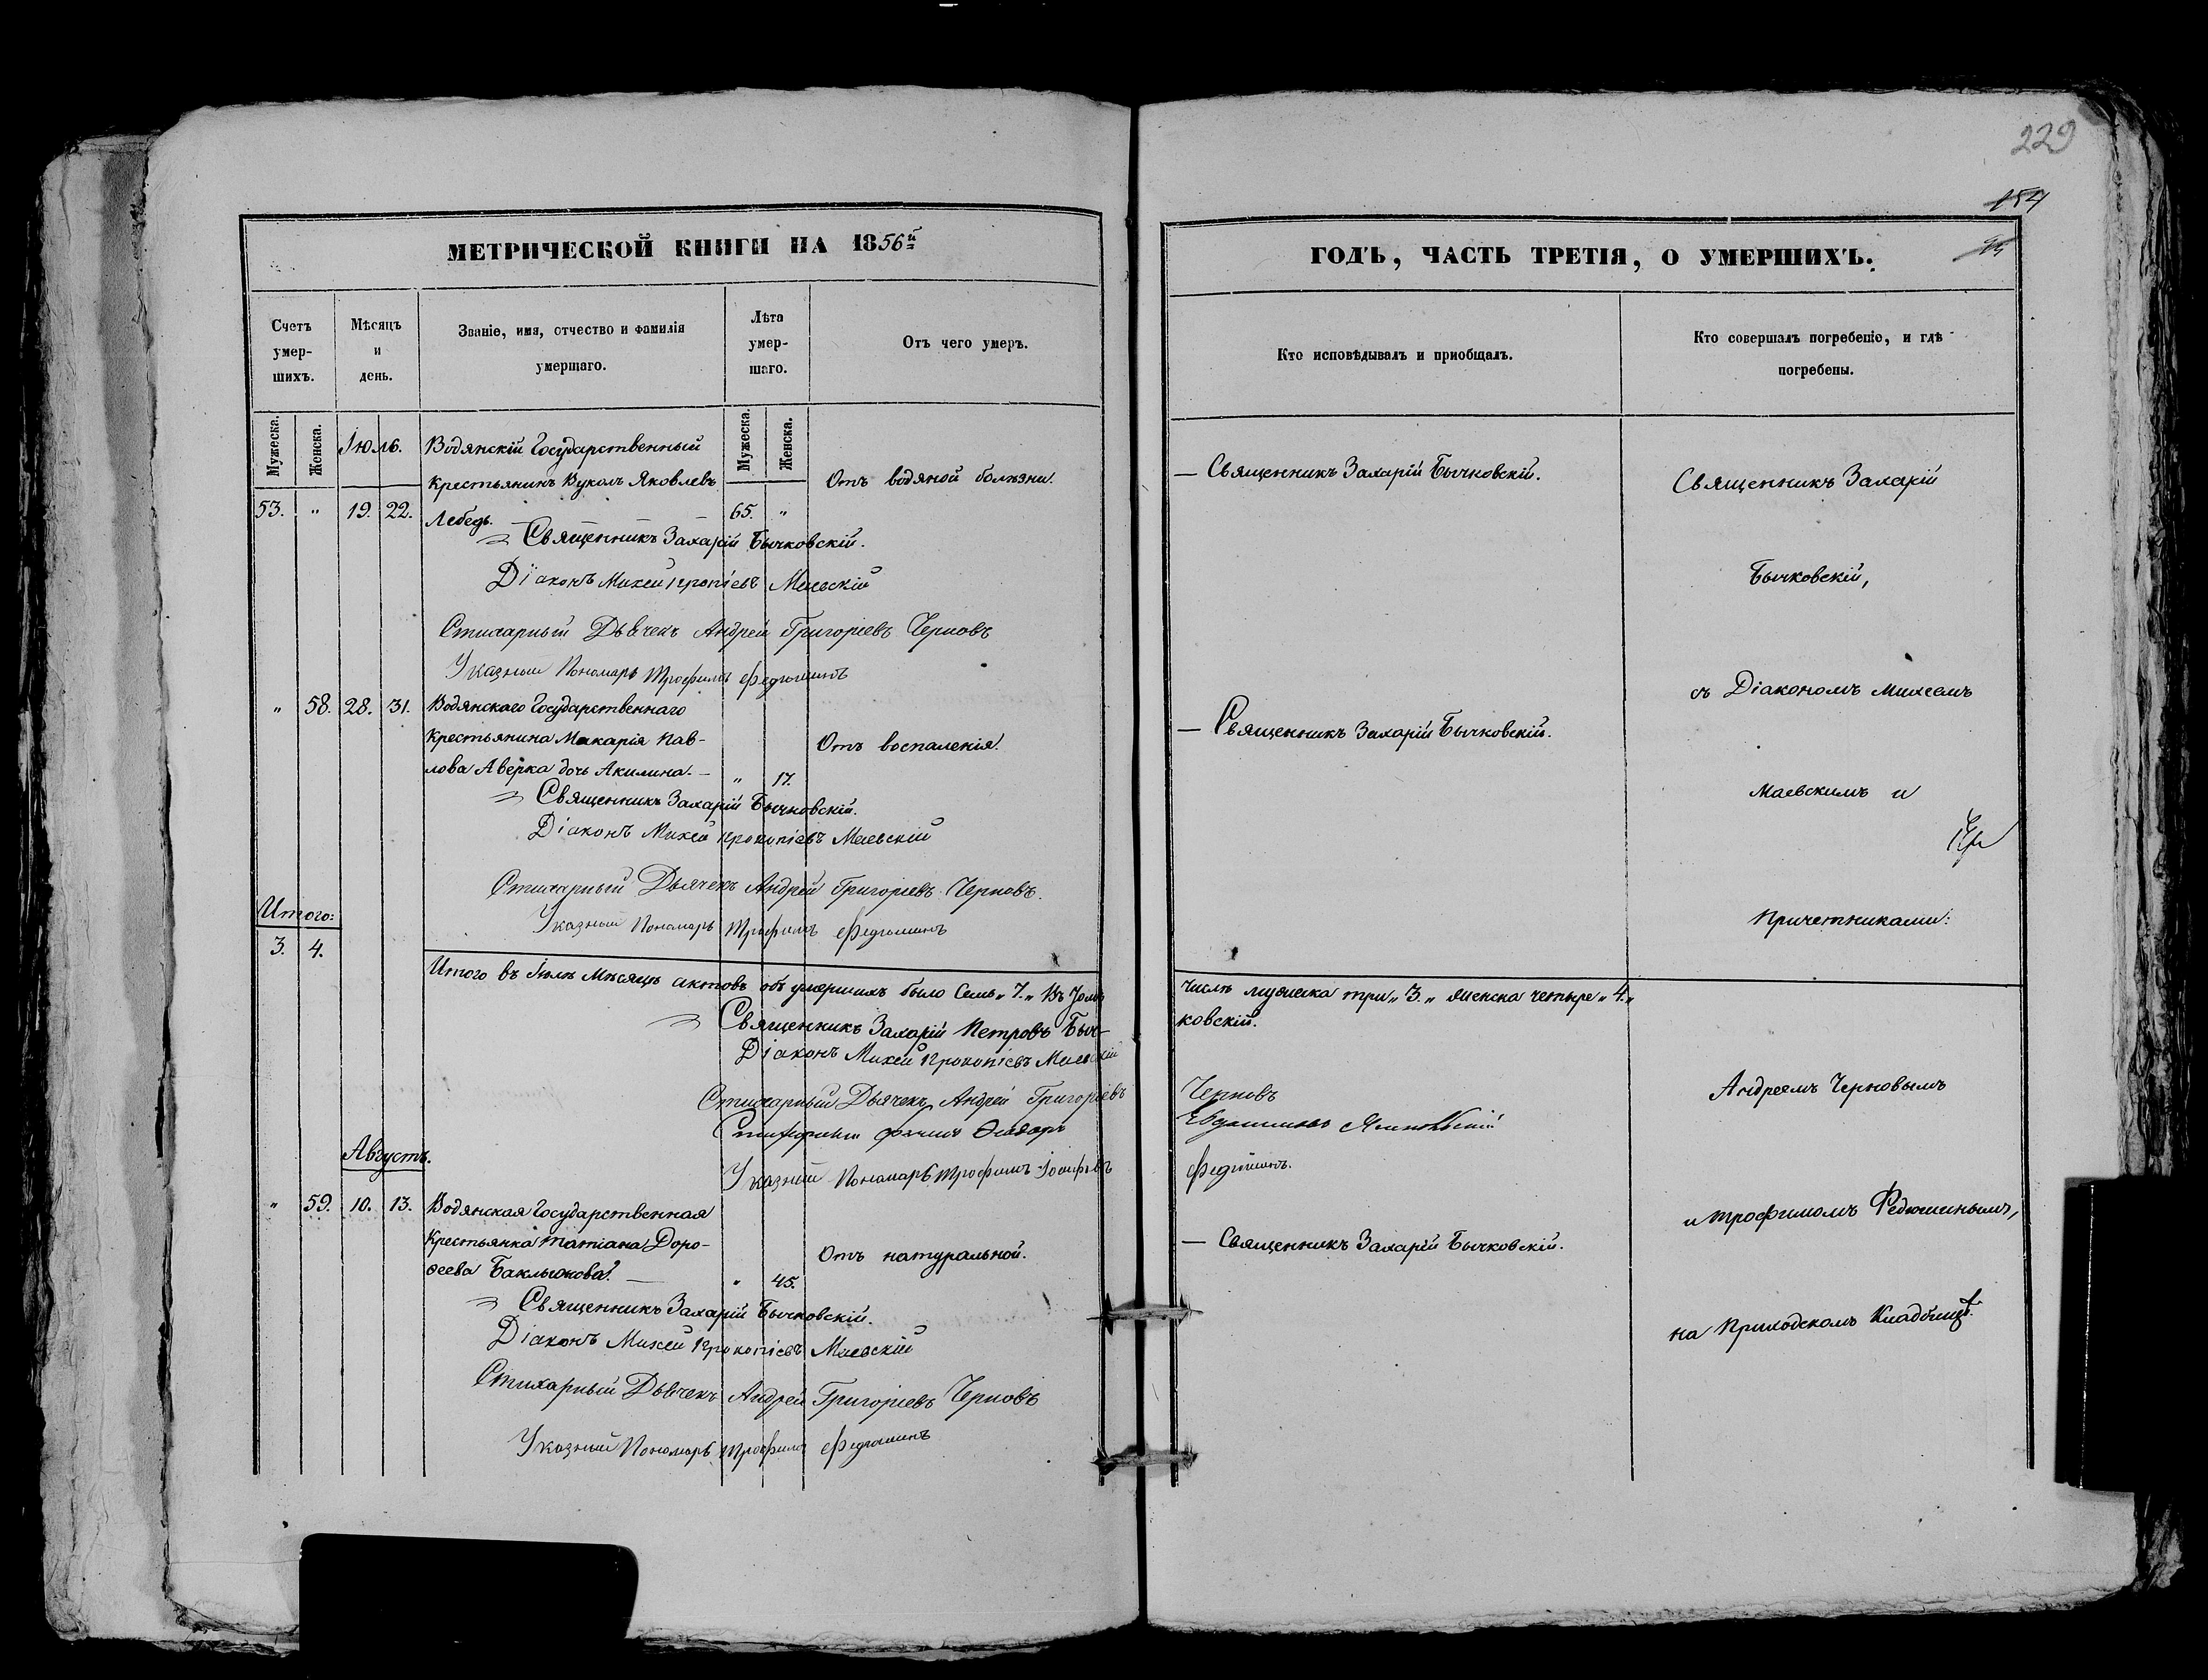 229
154
МЕТРИЧЕСКОЙ КНИГИ НА 1856й
Счетъ умер-шихъ.
Мѣсяцъ и день.
Званіе, имя, отчество и фамилія умершаго.
Лѣта умер-шаго.
Отъ чего умеръ.
Мужеска.
Женска.
Мужеска.
Женска.
Іюль.
Водянскій Государственный
крестьянинъ Вуколъ Яковлевъ
Отъ водяной болѣзни.
53. " 19. 22. Лебедь. — 65. "
Священникъ Захарій Бычковскій.
Діаконъ Михей Прокопіевъ Маевскій
Стихарный Дьячекъ Андрей Григоріевъ Черновъ
Указный Пономарь Трофимъ Федюшинъ
" 58. 28. 31. Водянскаго Государственнаго
крестьянина Макарія Пав-
Отъ воспаленія.
лова Аверка дочь Акилина. — " 17.
Священникъ Захарій Бычковскій.
Діаконъ Михей Прокопіевъ Маевскій
Стихарный Дьячекъ Андрей Григоріевъ Черновъ.
Итого:
Указный Пономарь Трофимъ Федюшинъ
3. 4.
Итого въ Іюлѣ Мѣсяцѣ актовъ объ умершихъ было Семь „7." Въ томъ
Священникъ Захарій Петровъ Быч-
Діаконъ Михей Прокопіевъ Маевскій
Стихарный Дьячекъ Андрей Григоріевъ
Августъ.
Указный Пономарь Трофимъ Іосифовъ
" 59. 10. 13. Водянская Государственная
Крестьянка Татіана Доро-
Отъ натуральной.
ѳеева Баклыкова. — " 45.
Священникъ Захарій Бычковскій.
Діаконъ Михей Прокопіевъ Маевскій
Стихарный Дьячекъ Андрей Григоріевъ Черновъ
Указный Пономарь Трофимъ Федюшинъ
ГОДЪ, ЧАСТЬ ТРЕТІЯ, О УМЕРШИХЪ.
Кто исповѣдывалъ и приобщалъ.
Кто совершалъ погребеніе, и гдѣ погребены.
— Священникъ Захарій Бычковскій.
Священникъ Захарій
Бычковскій,
съ Діакономъ Михеемъ
— Священникъ Захарій Бычковскій.
Маевскимъ и
Причетниками:
числѣ мужеска три „3." женска четыре „4."
ковскій.
Черновъ
Андреемъ Черновымъ
Федюшинъ.
и Трофимомъ Федюшинымъ,
— Священникъ Захарій Бычковскій.
на Приходскомъ Кладбищѣ.